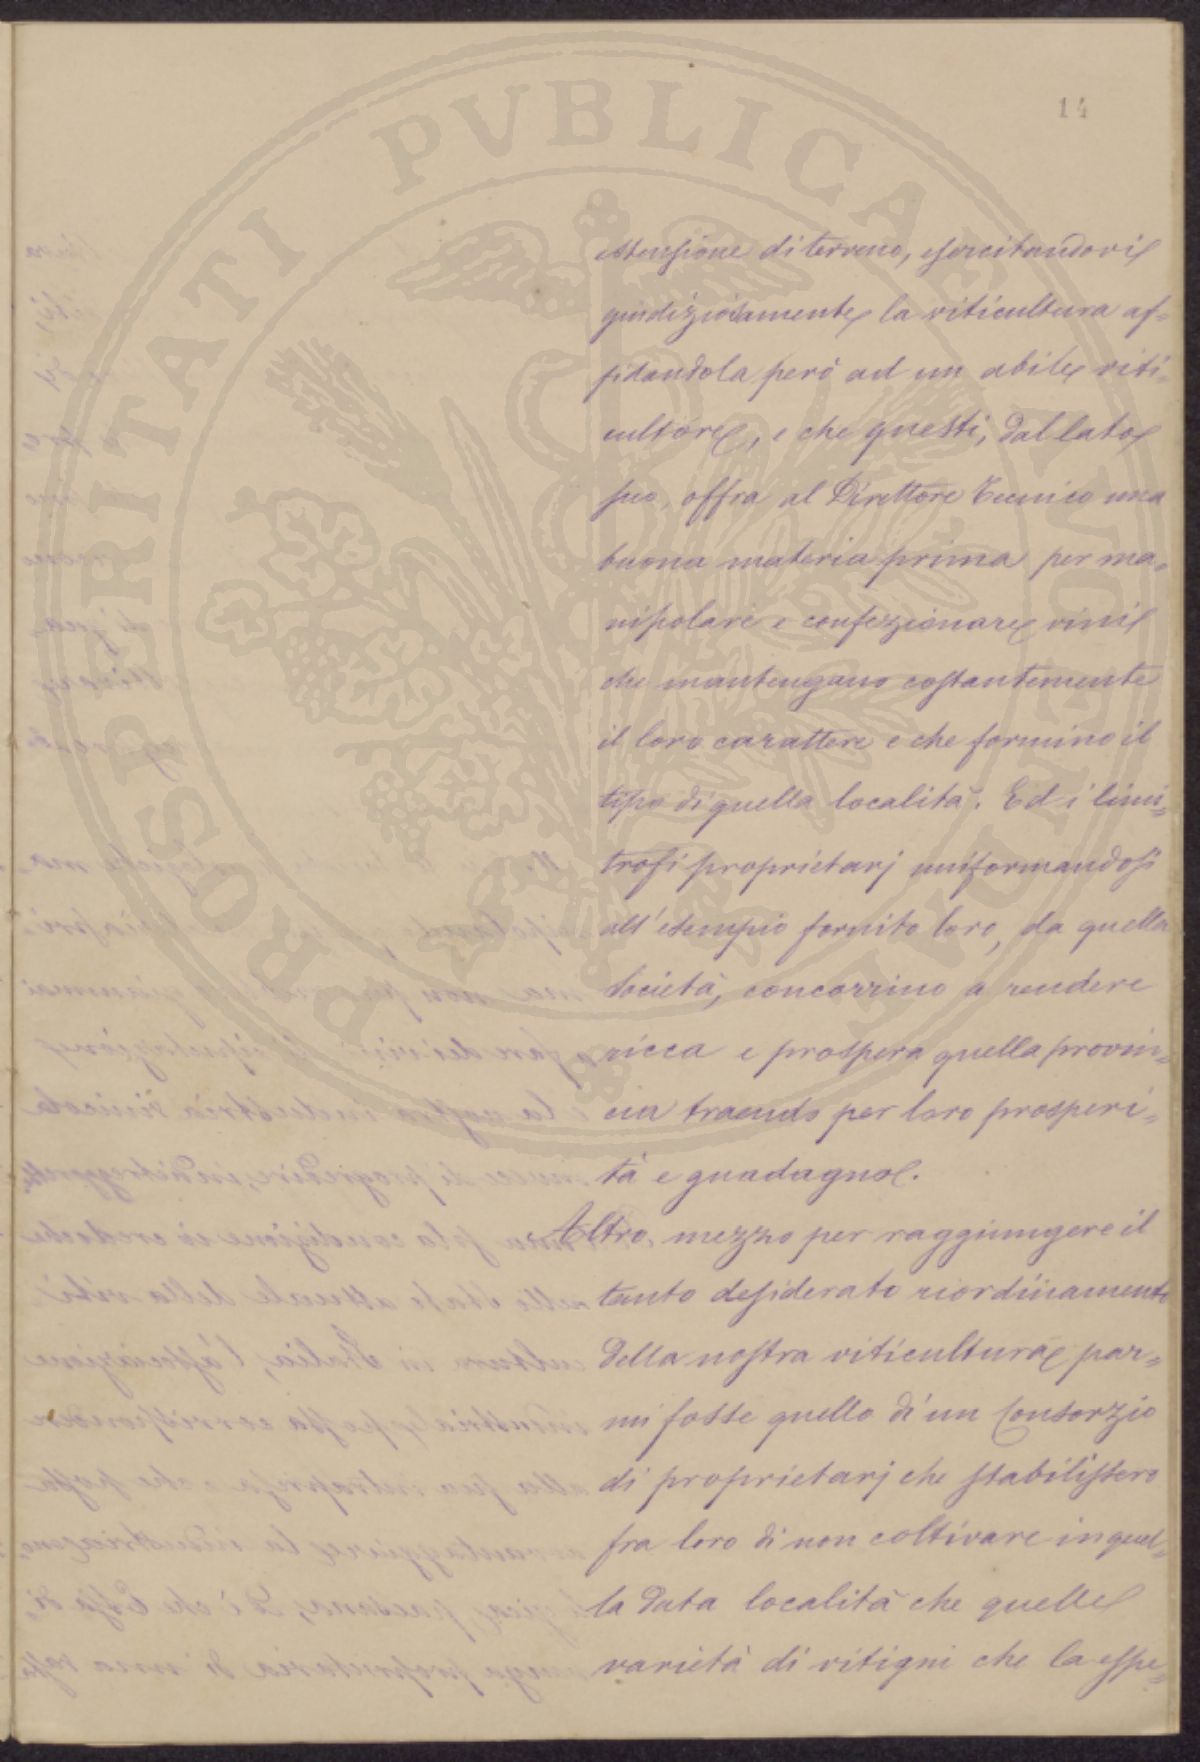 PROSPERITATI PVBLICAE AVGENDAE
14
estensione di terreno, esercitandovi
giudiziosamente la viticultura af=
fidandola però ad un abile viti=
cultore, e che questi, dal lato
suo, offra al Direttore Tecnico una
buona materia prima per ma=
nipolare e confezionare vini
che mantengano costantemente
il loro carattere e che formino il
tipo di quella località. Ed i limi=
trofi proprietarj uniformandosi
all'esempio fornito loro, da quella
Società, concorrino a rendere
ricca e prospera quella provin=
cia traendo per loro prosperi=
tà e guadagno.
Altro mezzo per raggiungere il
tanto desiderato riordinamento
della nostra viticultura par=
mi fosse quello di un Consorzio
di proprietarj che stabilissero
fra loro di non coltivare in quel=
la data località che quelle
varietà di vitigni che la espe=